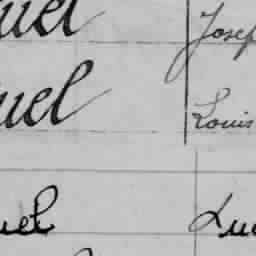 uel Josep
uel Louis
uel Lu